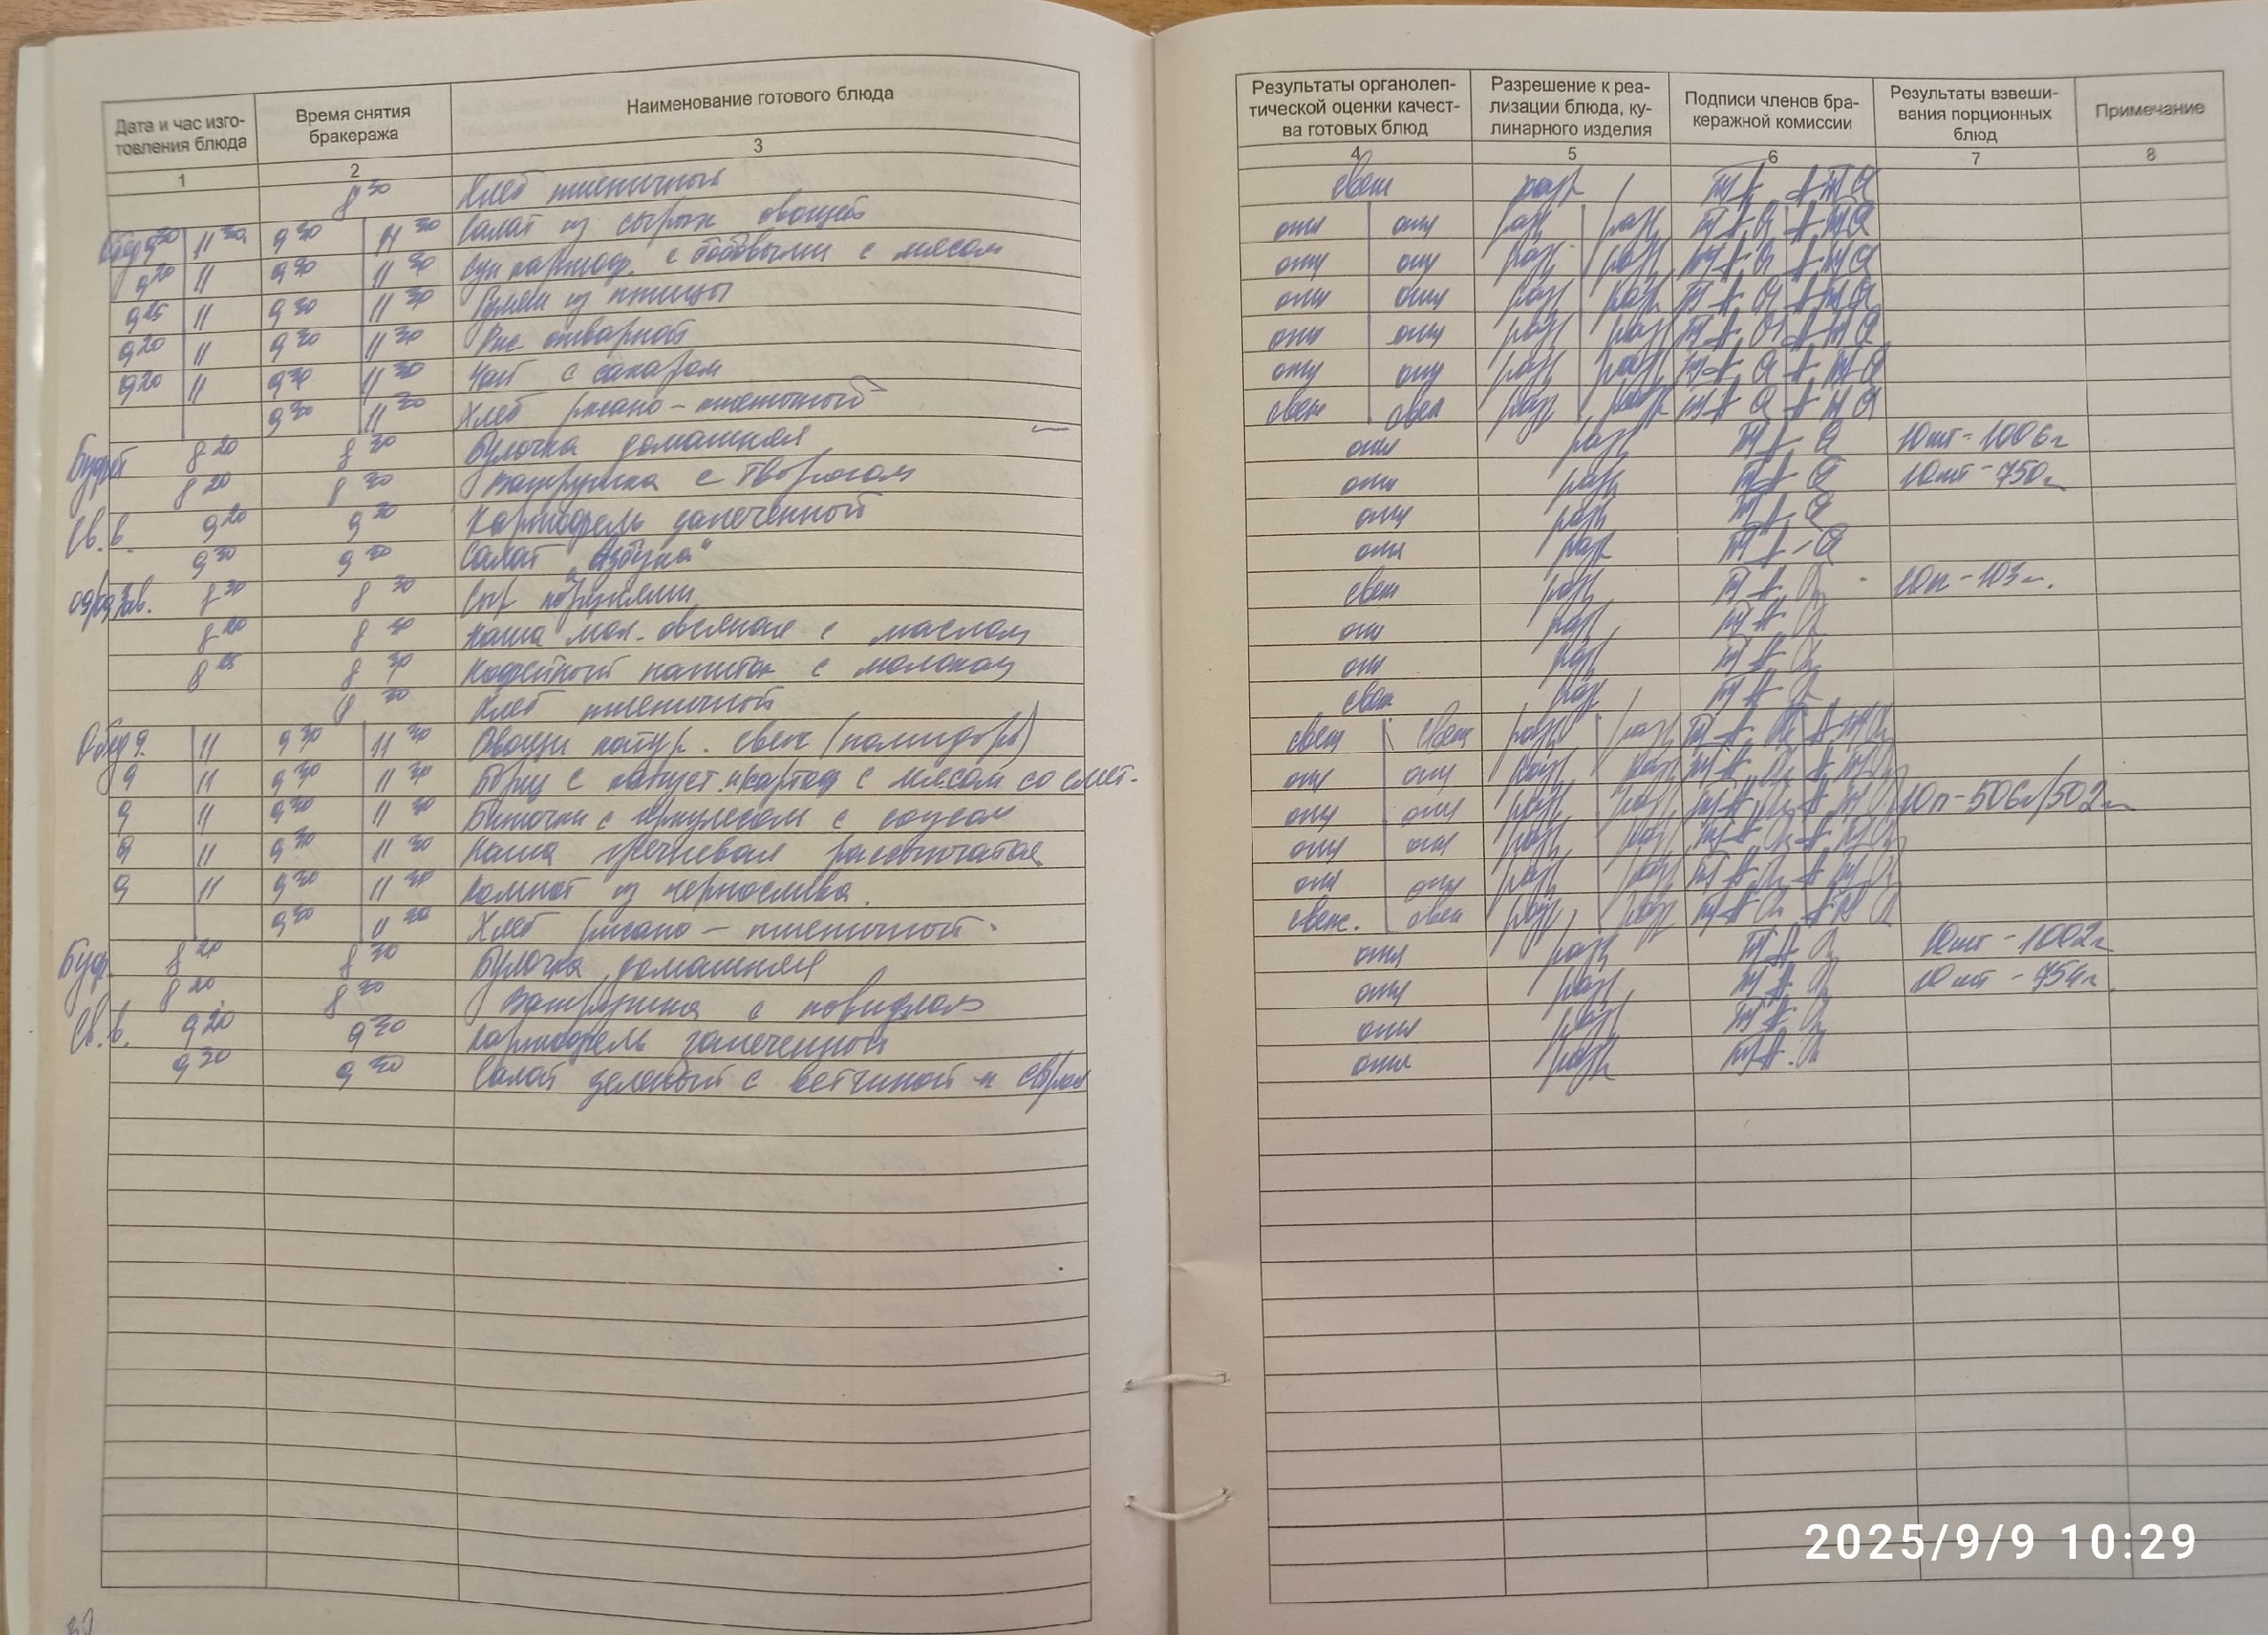 Дата и час изго-
товления блюда
Время снятия
бракеража
Наименование готового блюда
1 2 3
8 30 Хлеб пшеничный
Обед 9 30 11 30 9 30 11 30 Салат из сырых овощей
9 20 11 9 30 11 30 Суп картоф. с бобовыми с мясом
9 25 11 9 30 11 30 из птицы
9 20 11 9 30 11 30 Рис отварной
9 20 11 9 30 11 30 Чай с сахаром
9 30 11 30 Хлеб ржано-пшеничный
Буфет 8 20 8 30 Булочка домашняя
8 20 8 30 Ватрушка с творогом
Св. в. 9 20 9 30 Картофель запеченный
9 30 9 30 Салат „Азбука"
Зав. 8 30 8 30 Сыр порциями
8 20 8 30 Каша мол. овсяная с маслом
8 25 8 30 Кофейный напиток с молоком
8 30 Хлеб пшеничный
Обед 9 11 9 30 11 30 Овощи натур. свеж (помидоры)
9 11 9 30 11 30 Борщ с капуст. и картоф с мясом со смет.
9 11 9 30 11 30 Биточки с геркулесом с соусом
9 11 9 30 11 30 Каша гречневая рассыпчатая
9 11 9 30 11 30 Компот из чернослива.
9 30 11 30 Хлеб ржано-пшеничный.
Буф. 8 20 8 30 Булочка домашняя
8 20 8 30 Ватрушка с повидлом
Св. в. 9 20 9 30 Картофель запеченный
9 30 9 30 Салат зеленый с ветчиной и сыром
Результаты органолеп-
тической оценки качест-
ва готовых блюд
Разрешение к реа-
лизации блюда, ку-
линарного изделия
Подписи членов бра-
керажной комиссии
Результаты взвеши-
вания порционных
блюд
Примечание
4 5 6 7 8
свеж разр
отл отл разр разр
отл отл разр разр
отл отл разр разр
отл отл разр разр
отл отл разр разр
свеж свеж разр разр
отл разр 10шт - 1006г
отл разр 10шт - 750г
отл разр
отл разр
свеж разр 10п - 103г.
отл разр
отл разр
свеж разр
свеж свеж разр разр
отл отл разр разр
отл отл разр разр 10п - 506г/502г
отл отл разр разр
отл отл разр разр
свеж. свеж разр разр
отл разр 10шт - 1002г
отл разр 10шт - 754г.
отл разр
отл разр
2025/9/9 10:29